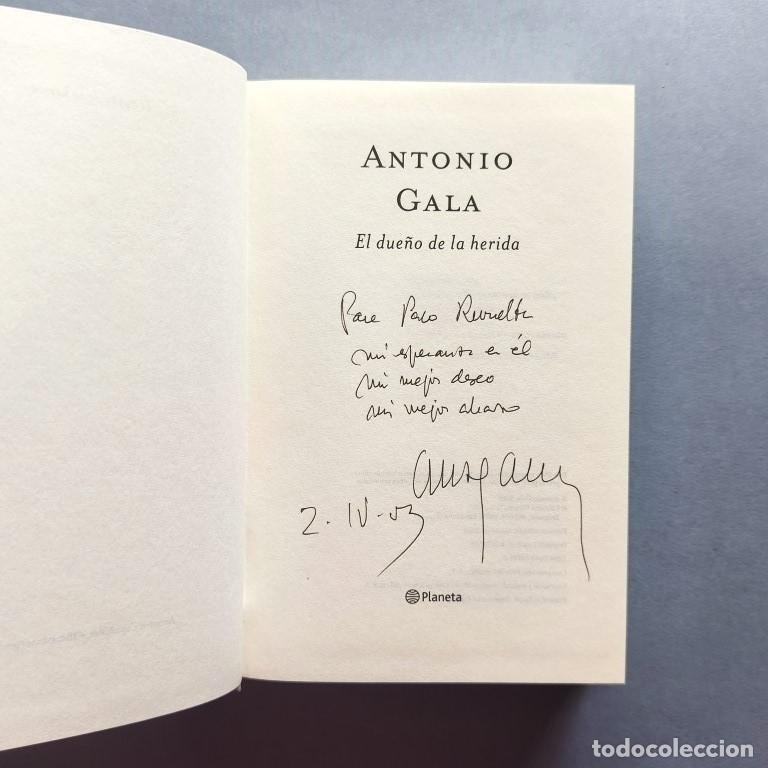 ANTONIO
GALA
El dueño de la herida
Para Paco Revuelta
mi esperanza en él
mi mejor deseo
mi mejor abrazo
2. IV. 03
Planeta
todocoleccion